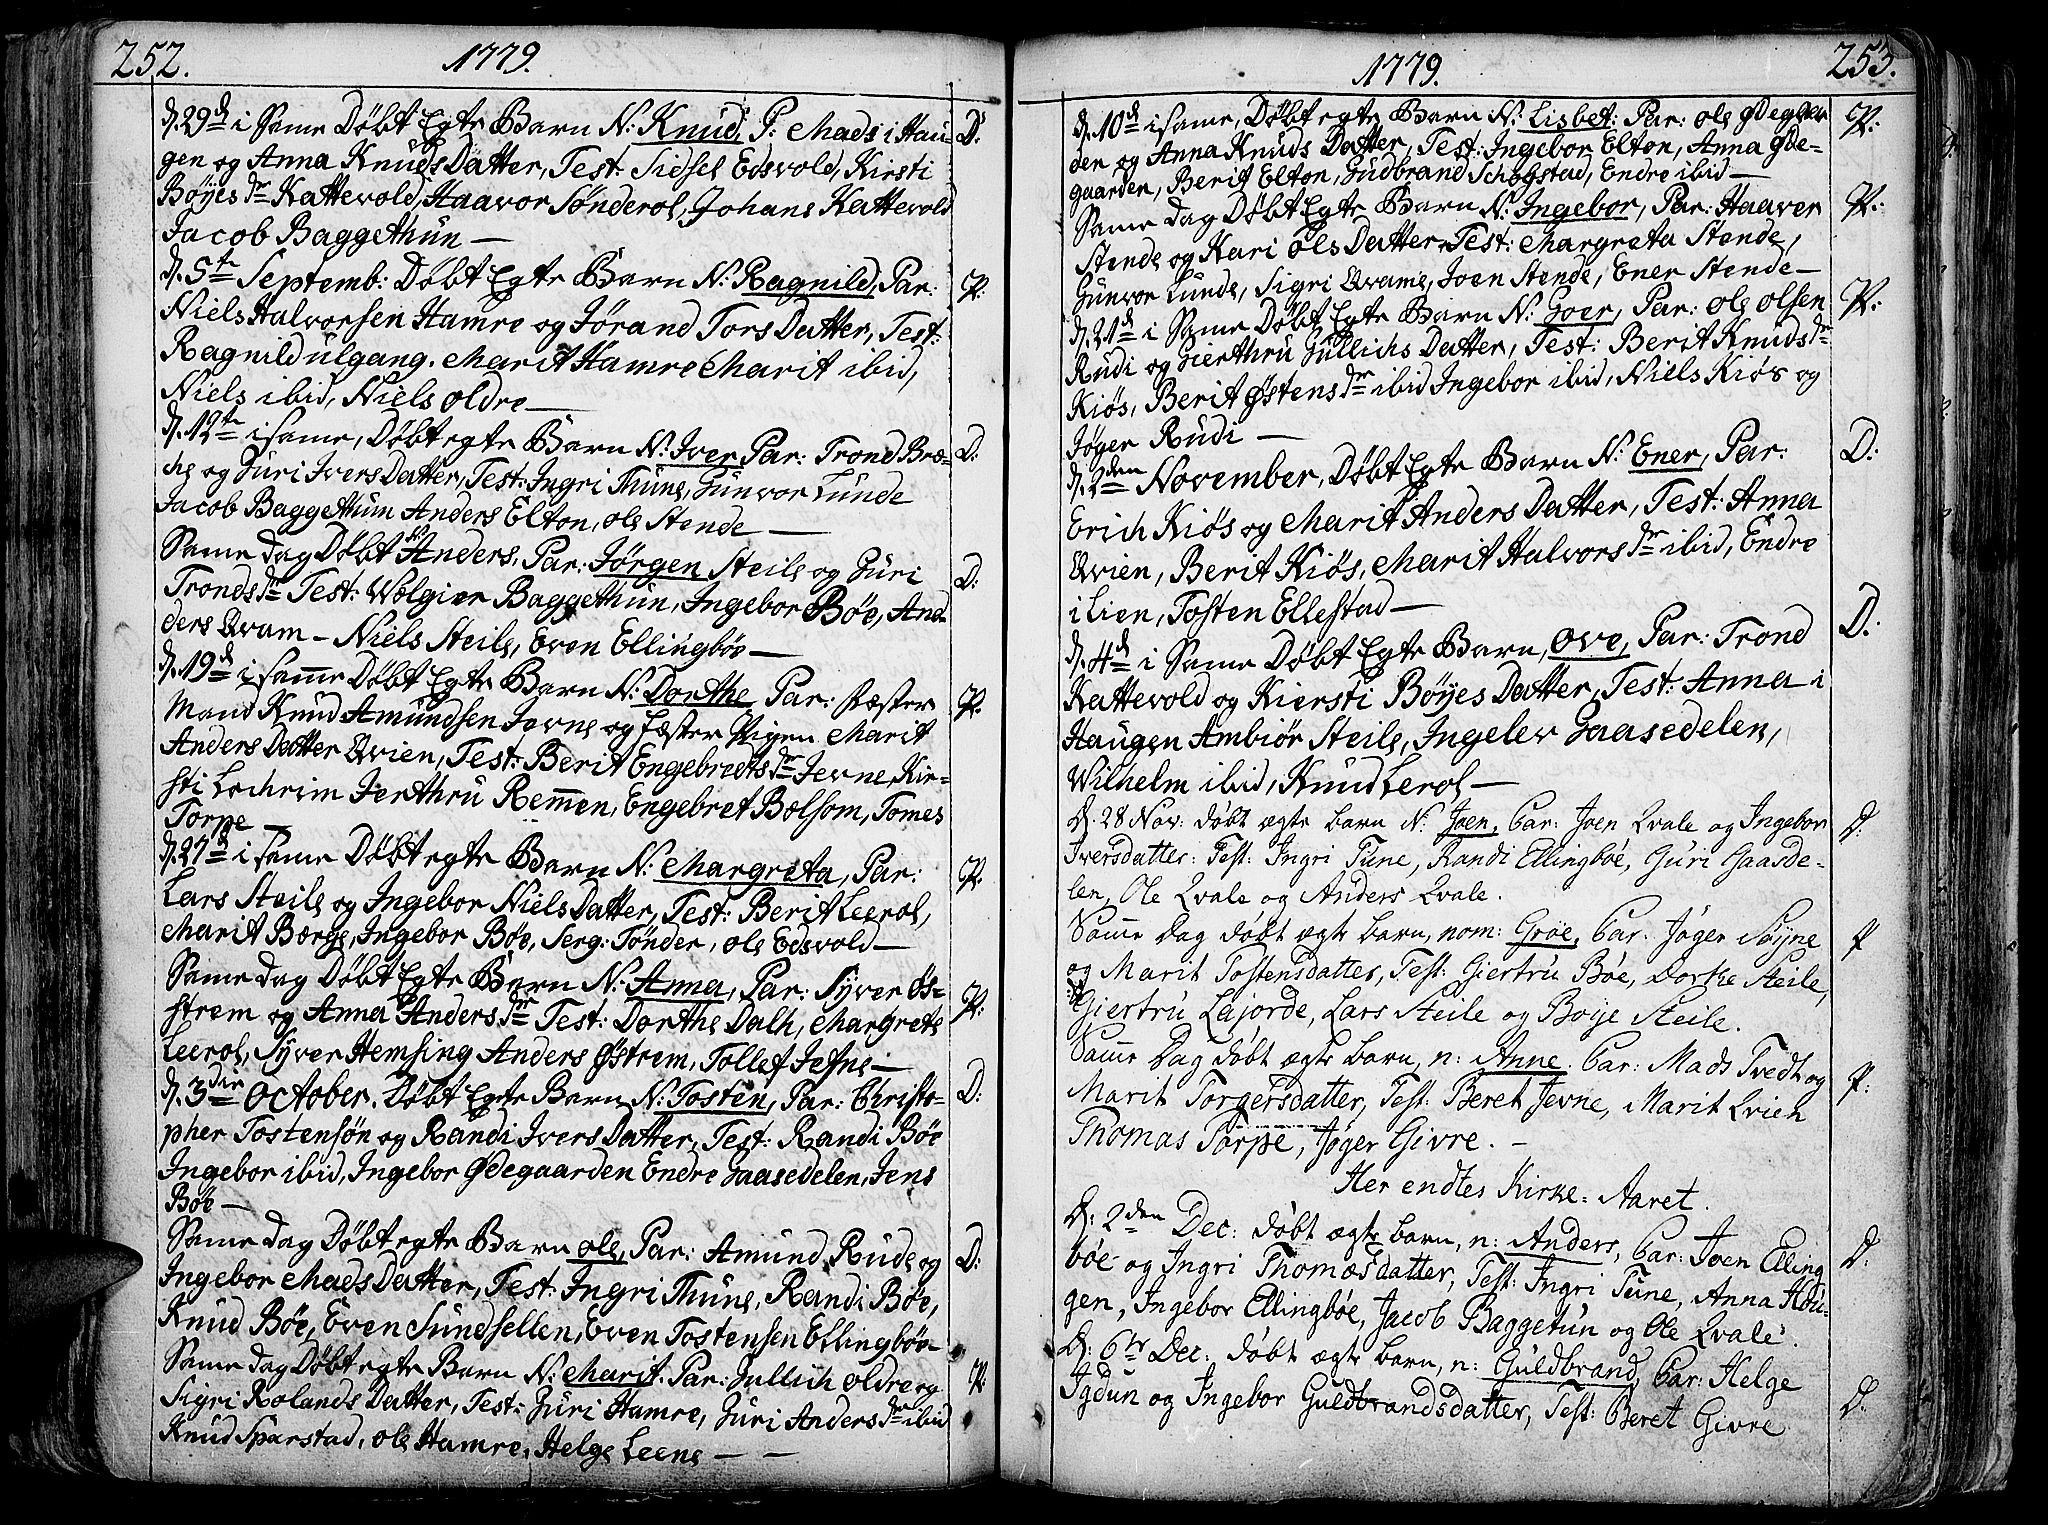 252.
1779.
d. 29d i Same Døbt Egte Barn N: Knud, P: Mads i Hau-
D:
gen og Anna KnudsDatter, Test: Sidsel Edsvold, Kirsti
Bøyes dr Kattevold, Haavor Sønderol, Johans Kattevold
Jacob Baggethun —
d. 5te Septemb: Døbt Egte Barn N: Ragnild, Par:
P:
Niels Halvorsen Hamre og Jørand TorsDatter, Test:
Ragnild Ulgang. Marit Hamre Marit ibid,
Niels ibid, Niels oldre —
d. 12te i same, Døbt egte Barn N: Iver Par: Trond Bræ-
D:
he og Guri IversDatter, Test: Ingri Thune, Gunvor Lunde
Jacob Baggethun Anders Elton, ole Stende —
Same dag Døbt Anders, Par: Jørgen Steile og Guri
D:
Tronds dr Test: Wølgier Baggethun, Ingebor Bøe, And-
ders Qvam — Niels Steile, Even Ellingbøe —
d. 19d i samme Døbt Egte Barn N: Dorthe Par: Fæster
P.
Mand Knud Amundsen Jevne og Fæster Pigen Marit
Anders Datter Qvien, Test: Berit Engebredts dr Jevne, Kir-
sti Lechrim Jerthru Remmen, Engebret Bolsom, Tomes
Torpe —
d. 27d i same Døbt egte Barn N: Margreta, Par:
P.
Lars Steile og Ingebor NielsDatter, Test: Berit Leerol,
Marit Børge, Ingebor Bøe, Serg: Tønder, ole Edsvold —
Same dag Døbt Egte Barn N: Anna, Par: Syver Øs-
P:
strem og Anna Anders dr Test: Dorthe Dalh, Margrete
Leerol, Syver Hemsing Anders Østrem, Tollef Jefne —
d. 3die October. Døbt Egte Barn N: Tosten, Par: Christo-
D:
pher Tostensøn og Randi IversDatter, Test: Randi Bøe
Ingebor ibid, Ingebor Ødegaarden Endre Gaasedelen, Jens
Bøe —
Same dag Døbt egte Barn ole, Par: Amund Rude og
D:
Ingebor MadsDatter, Test: Ingri Thune, Randi Bøe,
Knud Bøe, Even Sundsellen, Even Tostensen Ellingbøe
Same dag Døbt egte Barn N: Marit. Par: Gullich oldre og
P.
Sigri RolandsDatter, Test: Guri Hamre, Guri Anders dr ibid
Knud Sparstad, ole Hamre, Helge Leene — —
1779.
253.
d. 10d i same, Døbt egte Barn N: Lisbet: Par: ole Ødegaar
P:
den og Anna Knuds Datter, Test: Ingebor Elton, Anna Øde-
gaarden, Berit Elton, Gudbrand Schogstad, Endre ibid —
Same dag Døbt Egte Barn N: Ingebor, Par: Haaver
P:
Stende og Kari olsDatter, Test: Margreta Stende,
Gunvor Lunde, Sigri Qvame, Joen Stende, Ener Stende —
d. 21d i Same Døbt Egte Barn N: Goer, Par: ole olsen
P:
Rudi og Gierthru Gullichs Datter, Test: Berit Knuds dr
Kiøs, Berit Østens dr ibid Ingebor ibid, Niels Kiøs og
Jøger Rudi —
d. 2den November, Døbt Egte Barn N: Ener, Par:
D:
Erich Kiøs og Marit AndersDatter, Test: Anna
Qvien, Berit Kiøs, Marit Halvors dr ibid, Endre
i Lien, Tosten Ellestad —
d. 4d i Same Døbt Egte Barn, Ove, Par: Trond
D:
Kattevold og Kiersti BøyesDatter, Test: Anna i
Haugen Ambiør Steile, Ingelev Gaasedelen,
Wilhelm ibid, Knud Lerol —
D. 28 Nov: døbt ægte barn N: Joen, Par: Joen Qvale og Ingebor
D:
Iversdatter: Test: Ingri Tune, Randi Ellingbøe, Guri Gaasde-
len, Ole Qvale og Anders Qvale.
Samme Dag døbt ægte barn, nom: Grøe, Par: Jøger Søyne
P
og Marit Tostensdatter, Test: Giertru Bøe, Dorthe Steile,
Giertru Lajorde, Lars Steile og Boije Steile.
Samme Dag døbt ægte barn, n: Anne. Par: Mads Tvedt og
P:
Marit Torgersdatter, Test: Beret Jevne, Marit Qvien
Thomas Torpe, Jøger Givre. —
Her endtes Kirke-Aaret.
D: 2den Dec: døbt ægte barn, n: Anders, Par: Joen Elling
D:
bøe og Ingri Thomæsdatter, Test: Ingri Tune, Anna Hou-
gen, Ingebor Ellingbøe, Jacob Baggetun og Ole Qvale.
D: 6te Dec: døbt ægte barn, n: Guldbrand, Par: Helge
D:
Igdun og Ingebor Guldbrandsdatter, Test: Beret Givre